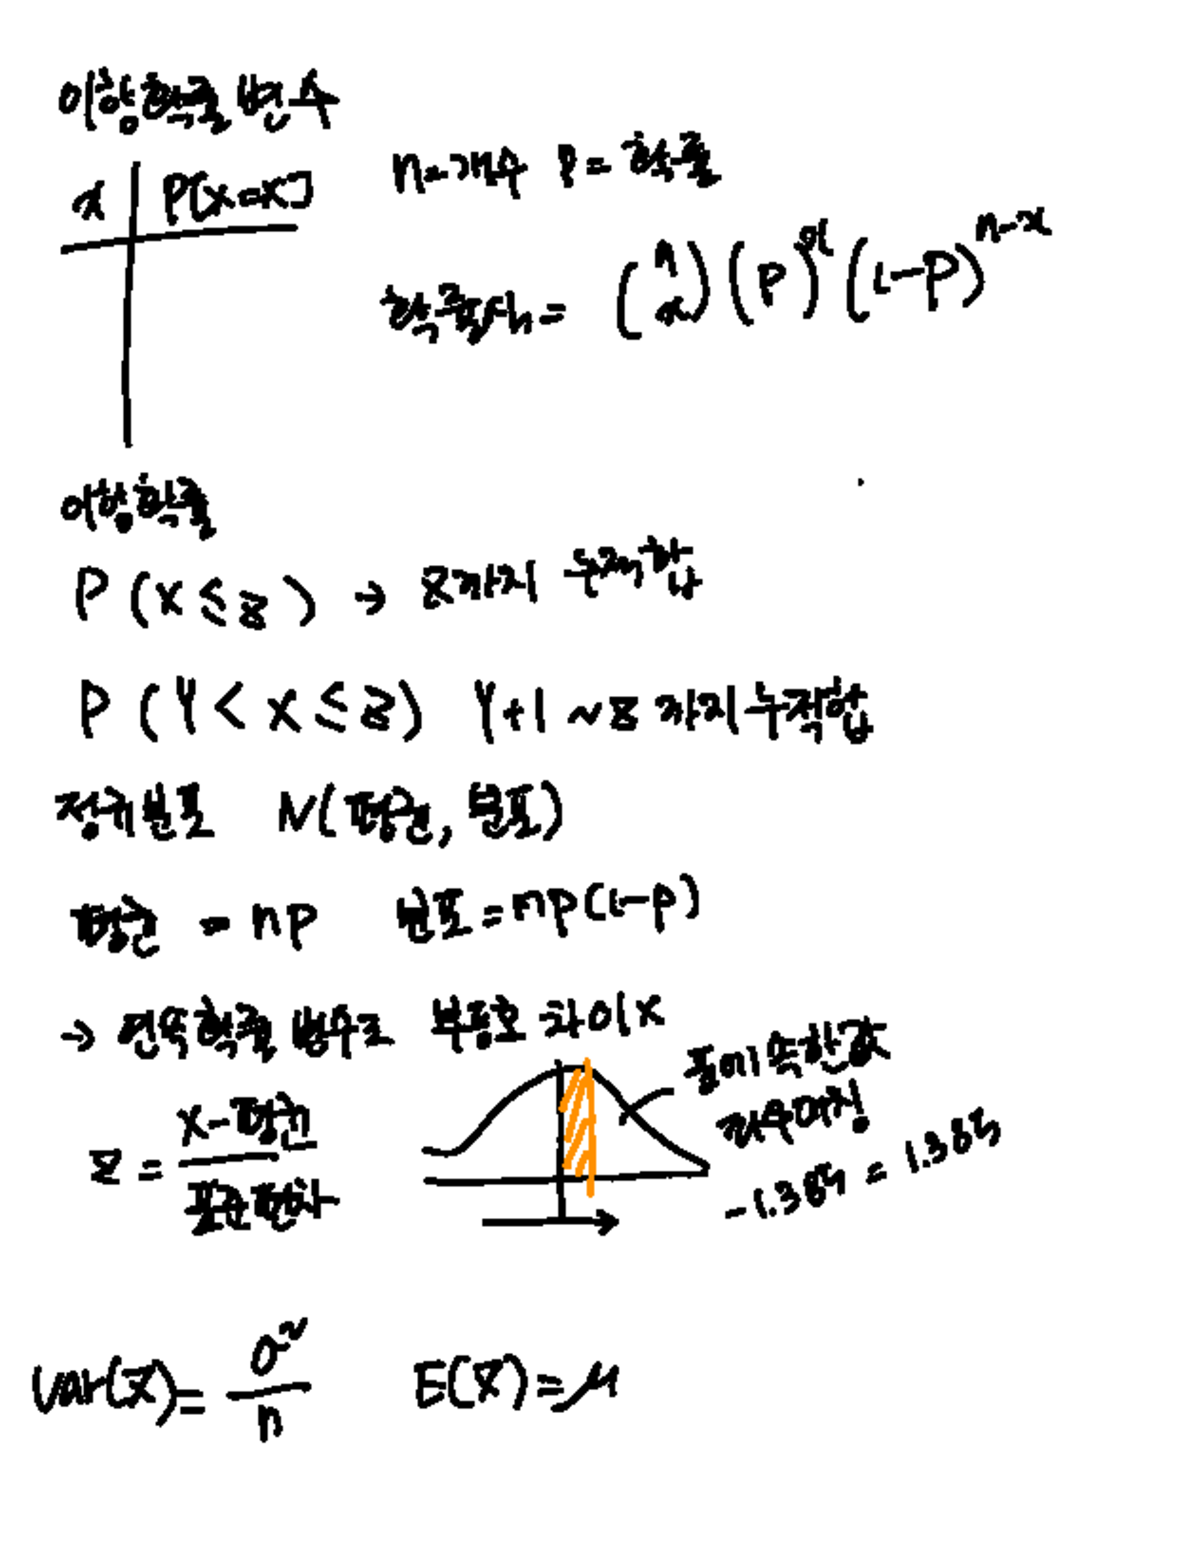 이항확률 변수
x P[X=x]
n=개수 P=확률
확률질하= (n x)(P)^x(1-P)^n-x
이항확률
P(X≤z) → z까지 누적합
P(Y<X≤z) Y+1~z까지누적합
정규분포 N(평균, 분포)
평균 = np 분포=np(1-p)
→ 연속확률변수로 부등호 차이X
z = X-평균 / 표준편차
표에 속한값
좌우대칭
-1.385 = 1.385
Var(x̄)= σ²/n E(x̄)=μ